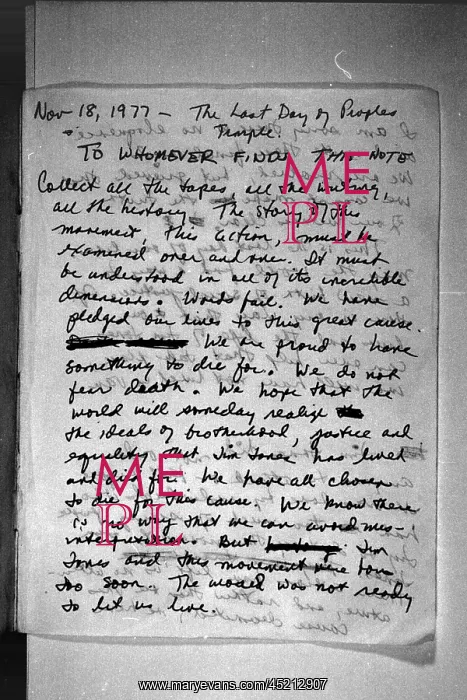 Nov 18, 1977 — The Last Day of Peoples
Temple
TO WHOMEVER FINDS THIS NOTE
Collect all the tapes, all the writing,
all the history. The story of this
movement, this action, must be
examined over and over. It must
be understood in all of its incredible
dimensions. Words fail. We have
pledged our lives to this great cause.
We are proud to have
something to die for. We do not
fear death. We hope that the
world will someday realize
the ideals of brotherhood, justice and
equality that Jim Jones has lived
and died for. We have all chosen
to die for this cause. We know there
is no way that we can avoid mis-
interpretation. But Jim
Jones and this movement were born
too soon. The world was not ready
to let us live.
ME
PL
ME
PL
www.maryevans.com/45212907